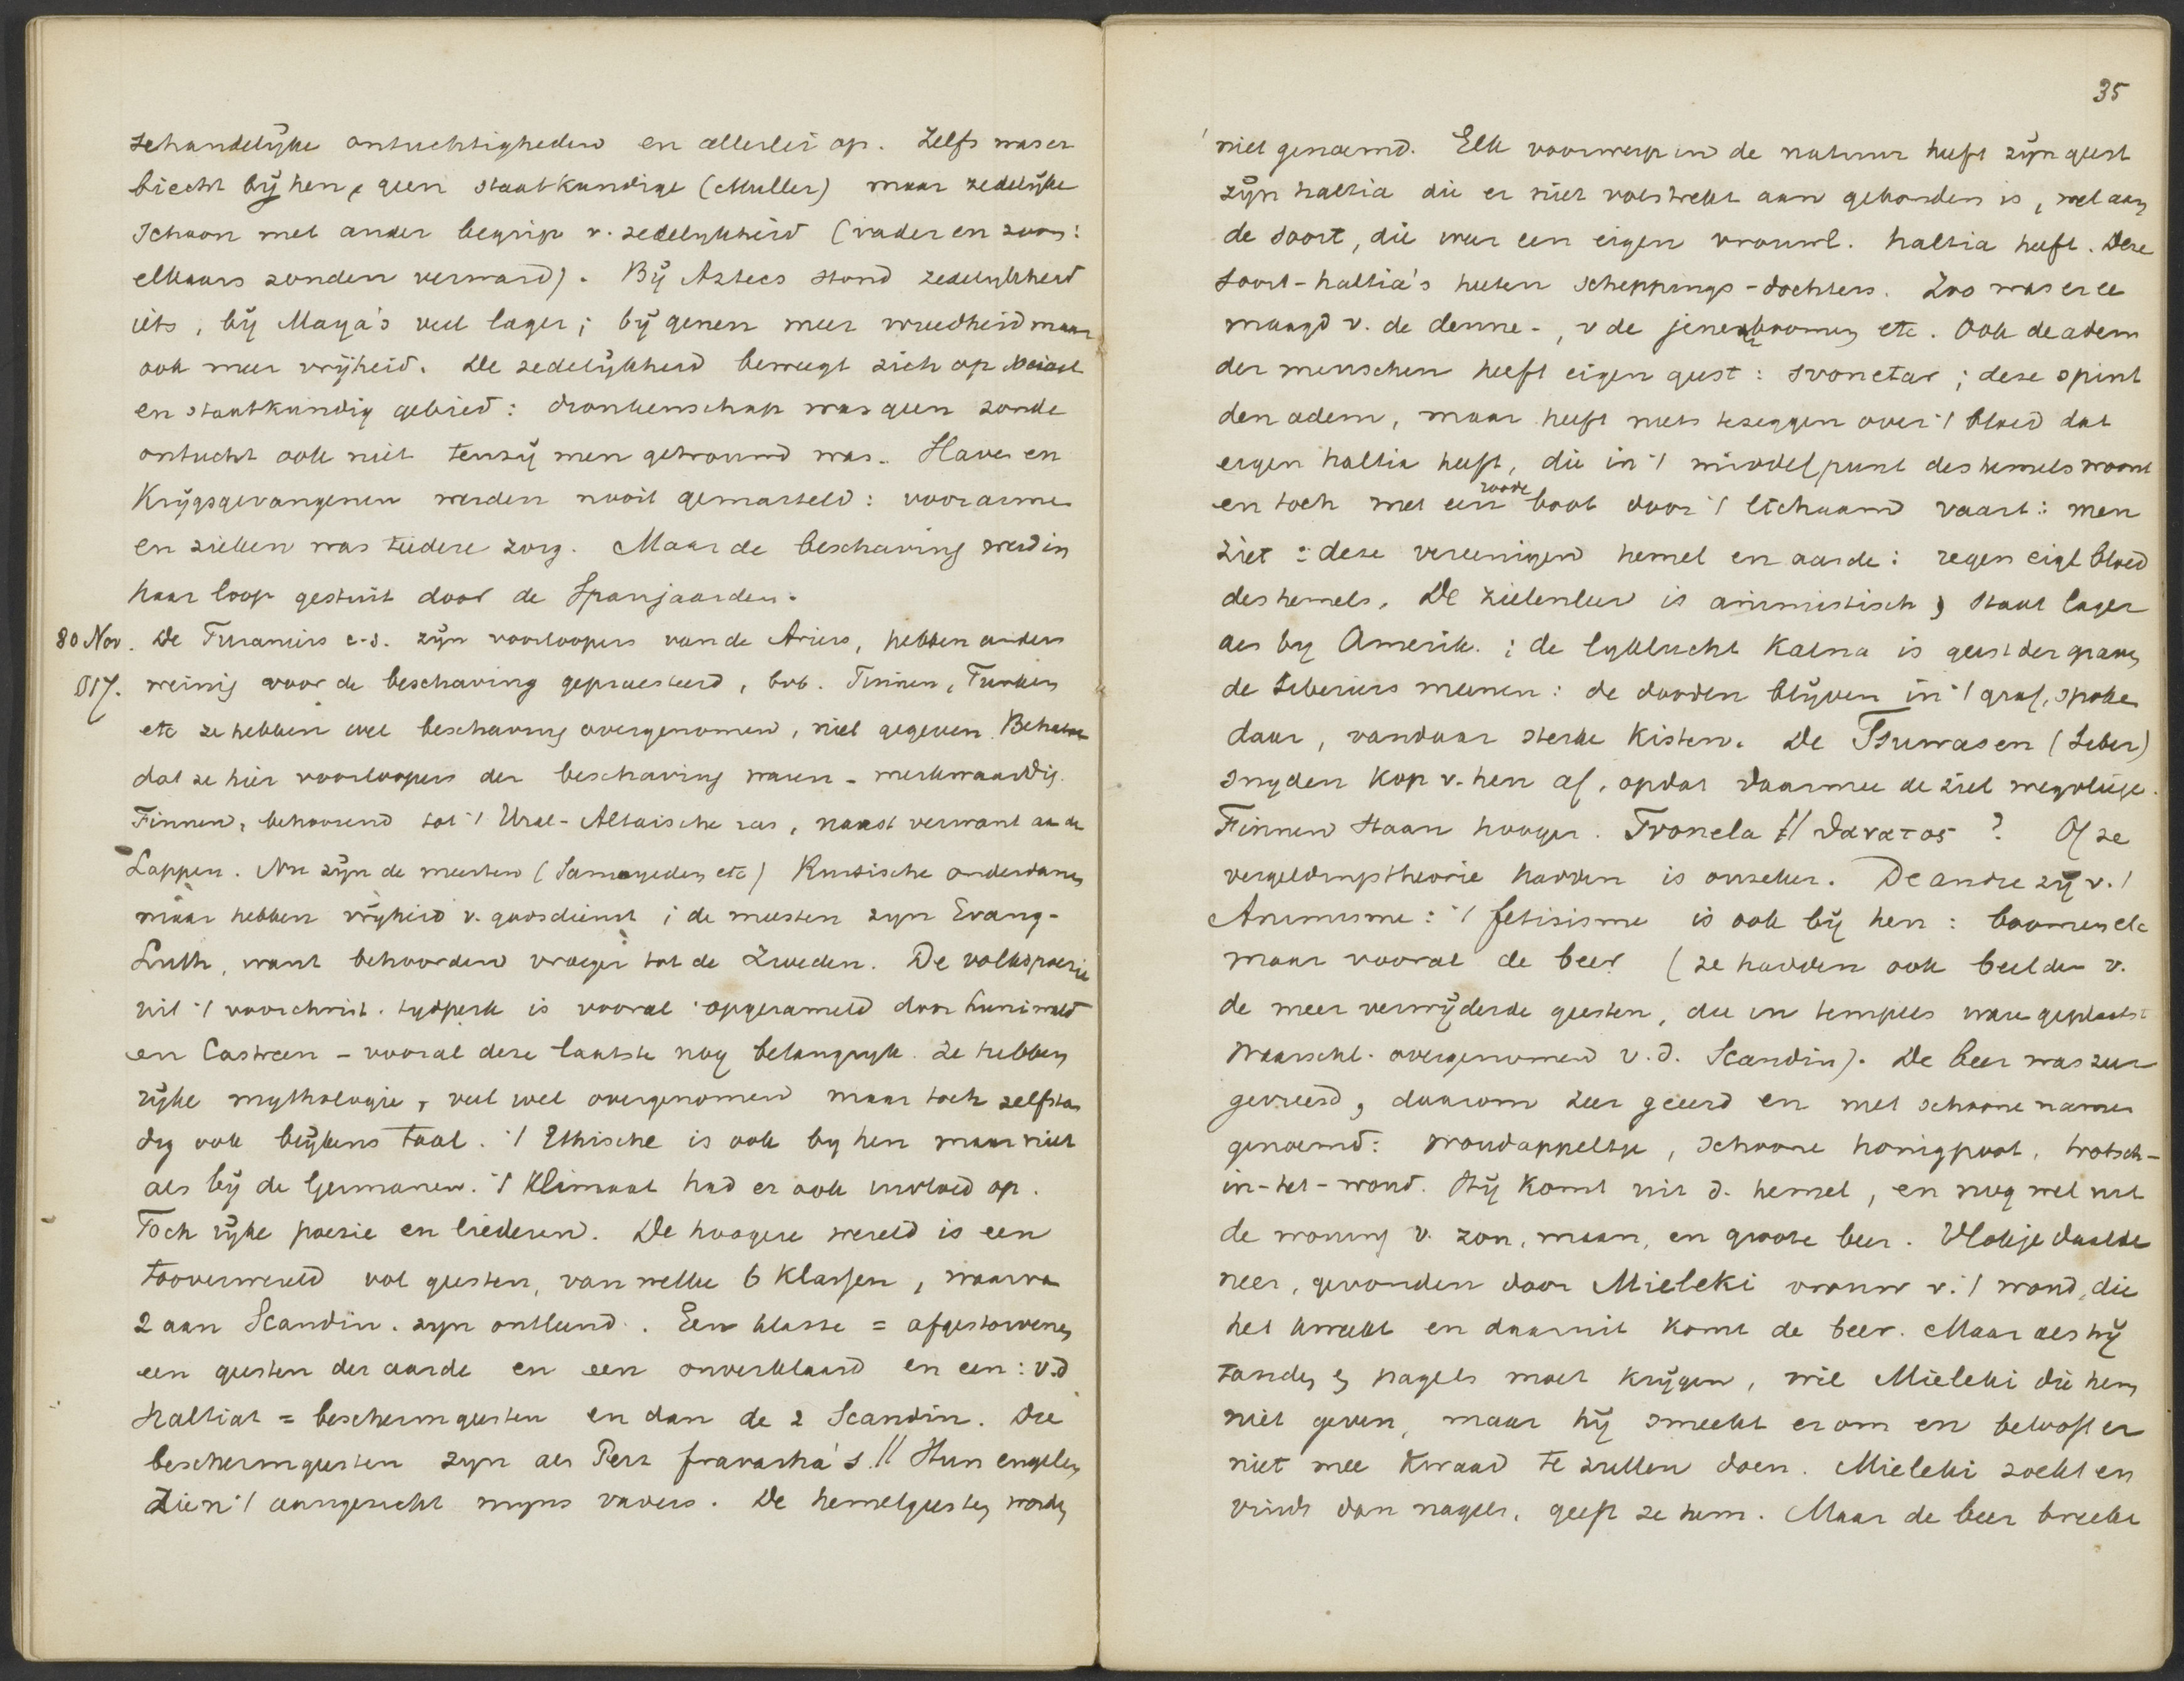 schandelijke ontuchtigheden en allerlei op. Zelfs was er
biecht bij hen, geen staatkundige (Muller) maar zedelijke
schoon met ander begrip v. zedelykheid (vader en zoons:
elkaars zonden verward). Bij Aztecs stond zedelykheid
iets, bij Maya's veel lager; bij genen meer wreedheid maar
ook meer vrijheid. De zedelijkheid beweegt zich op sociaal
en staatkundig gebied: dronkenschap was geen zonde
ontucht ook niet tenzij men getrouwd was. Slaven en
Krijgsgevangenen werden nooit gemarteld: voor arme
en zieken was teedere zorg. Maar de beschaving werd in
haar loop gestuit door de Spanjaarden.
30 Nov. De Turaniers c.s. zijn voorloopers van de Ariers, hebben anders
017. weinig voor de beschaving gepraesteerd, bvb. Finnen, Turken
etc ze hebben wel beschaving overgenomen, niet gegeven. Behalve
dat ze hier voorloopers der beschaving waren - merkwaardig.
Finnen, behoorend tot 't Ural-Altaische ras, naast verwant aan de
Lappen. Nu zijn de meesten (Samoyeden etc) Russische onderdanen
maar hebben vrijheid v. godsdienst; de meesten zyn Evang-
Luth, want behoorden vroeger tot de Zweden. De volkspoezie
uit 't voorchrist. tydperk is vooral opgezameld door
en Castreen - vooral deze laatste nog belangryk. Ze hebben
rijke mythologie, veel wel overgenomen maar toch zelfstan
dig ook blijkens taal. 't Ethische is ook by hen maar niet
als bij de Germanen. 't Klimaat had er ook invloed op.
Toch rijke poezie en liederen. De hoogere wereld is een
tooverwereld vol geesten, van welke 6 klassen, waarva
2 aan Scandin. zyn ontleend. Een klasse = afgestorvenen
een geesten der aarde en een onverklaard en een: v.d
Haltiat = beschermgeesten en dan de 2 Scandin. Die
beschermgeesten zyn als Perz fravasha's // Hun engelen
zien 't aangezicht mijns vaders. De hemelgeesten worden
35
niet genoemd. Elk voorwerp in de natuur heeft zijn geest
zijn haltia die er niet volstrekt aan gebonden is, wel aan
de soort, die weer een eigen vrouwl. haltia heeft. Deze
soort-haltia's heeten scheppings-dochters. Zoo was er ee
maagd v. de denne-, v de jeneverboomen etc. Ook de adem
der menschen heeft eigen geest: svonetar; deze spint
den adem, maar heeft niets te zeggen over 't bloed dat
eigen haltia heeft, die in 't middelpunt des hemels woont
en toch met een roode boot door 't lichaam vaart: men
ziet: deze vereenigen hemel en aarde: regen eigl bloed
des hemels. De zielenleer is animistisch, staat lager
als by Amerik.; de lyklucht Kalma is geest der graven
de Siberiers meenen: de dooden blijven in 't graf, spoke
daar, vandaar sterke kisten. De Tsuwasen (Siber)
snyden kop v. hen af, opdat daarmee de ziel wegvliege.
Finnen staan hooger. Tvonela // θανατος? Of ze
vergeldingstheorie hadden is onzeker. De andre zij v. 't
Animisme: 't fetisisme is ook bij hen: boomen etc
maar vooral de beer (ze hadden ook beelden v.
de meer verwijderde geesten, die in tempels ware geplaatst
waarschl. overgenomen v. d. Scandin). De beer was zeer
gevreesd, daarom zeer geeerd en met schoone namen
genoemd: woudappeltje, schoone honigpoot, trotsch-
in-het-woud. Hij komt uit d. hemel, en nog wel uit
de woning v. zon, maan, en groote beer. Vlokje daalde
neer, gevonden door Mieleki vrouw v. 't woud, die
het kweekt en daaruit komt de beer. Maar als hij
tanden & nagels moet krijgen, wil Mieleki die hem
niet geven, maar hij smeekt erom en belooft er
niet mee kwaad te zullen doen. Mieleki zoekt en
vindt dan nagels, geeft ze hem. Maar de beer breekt